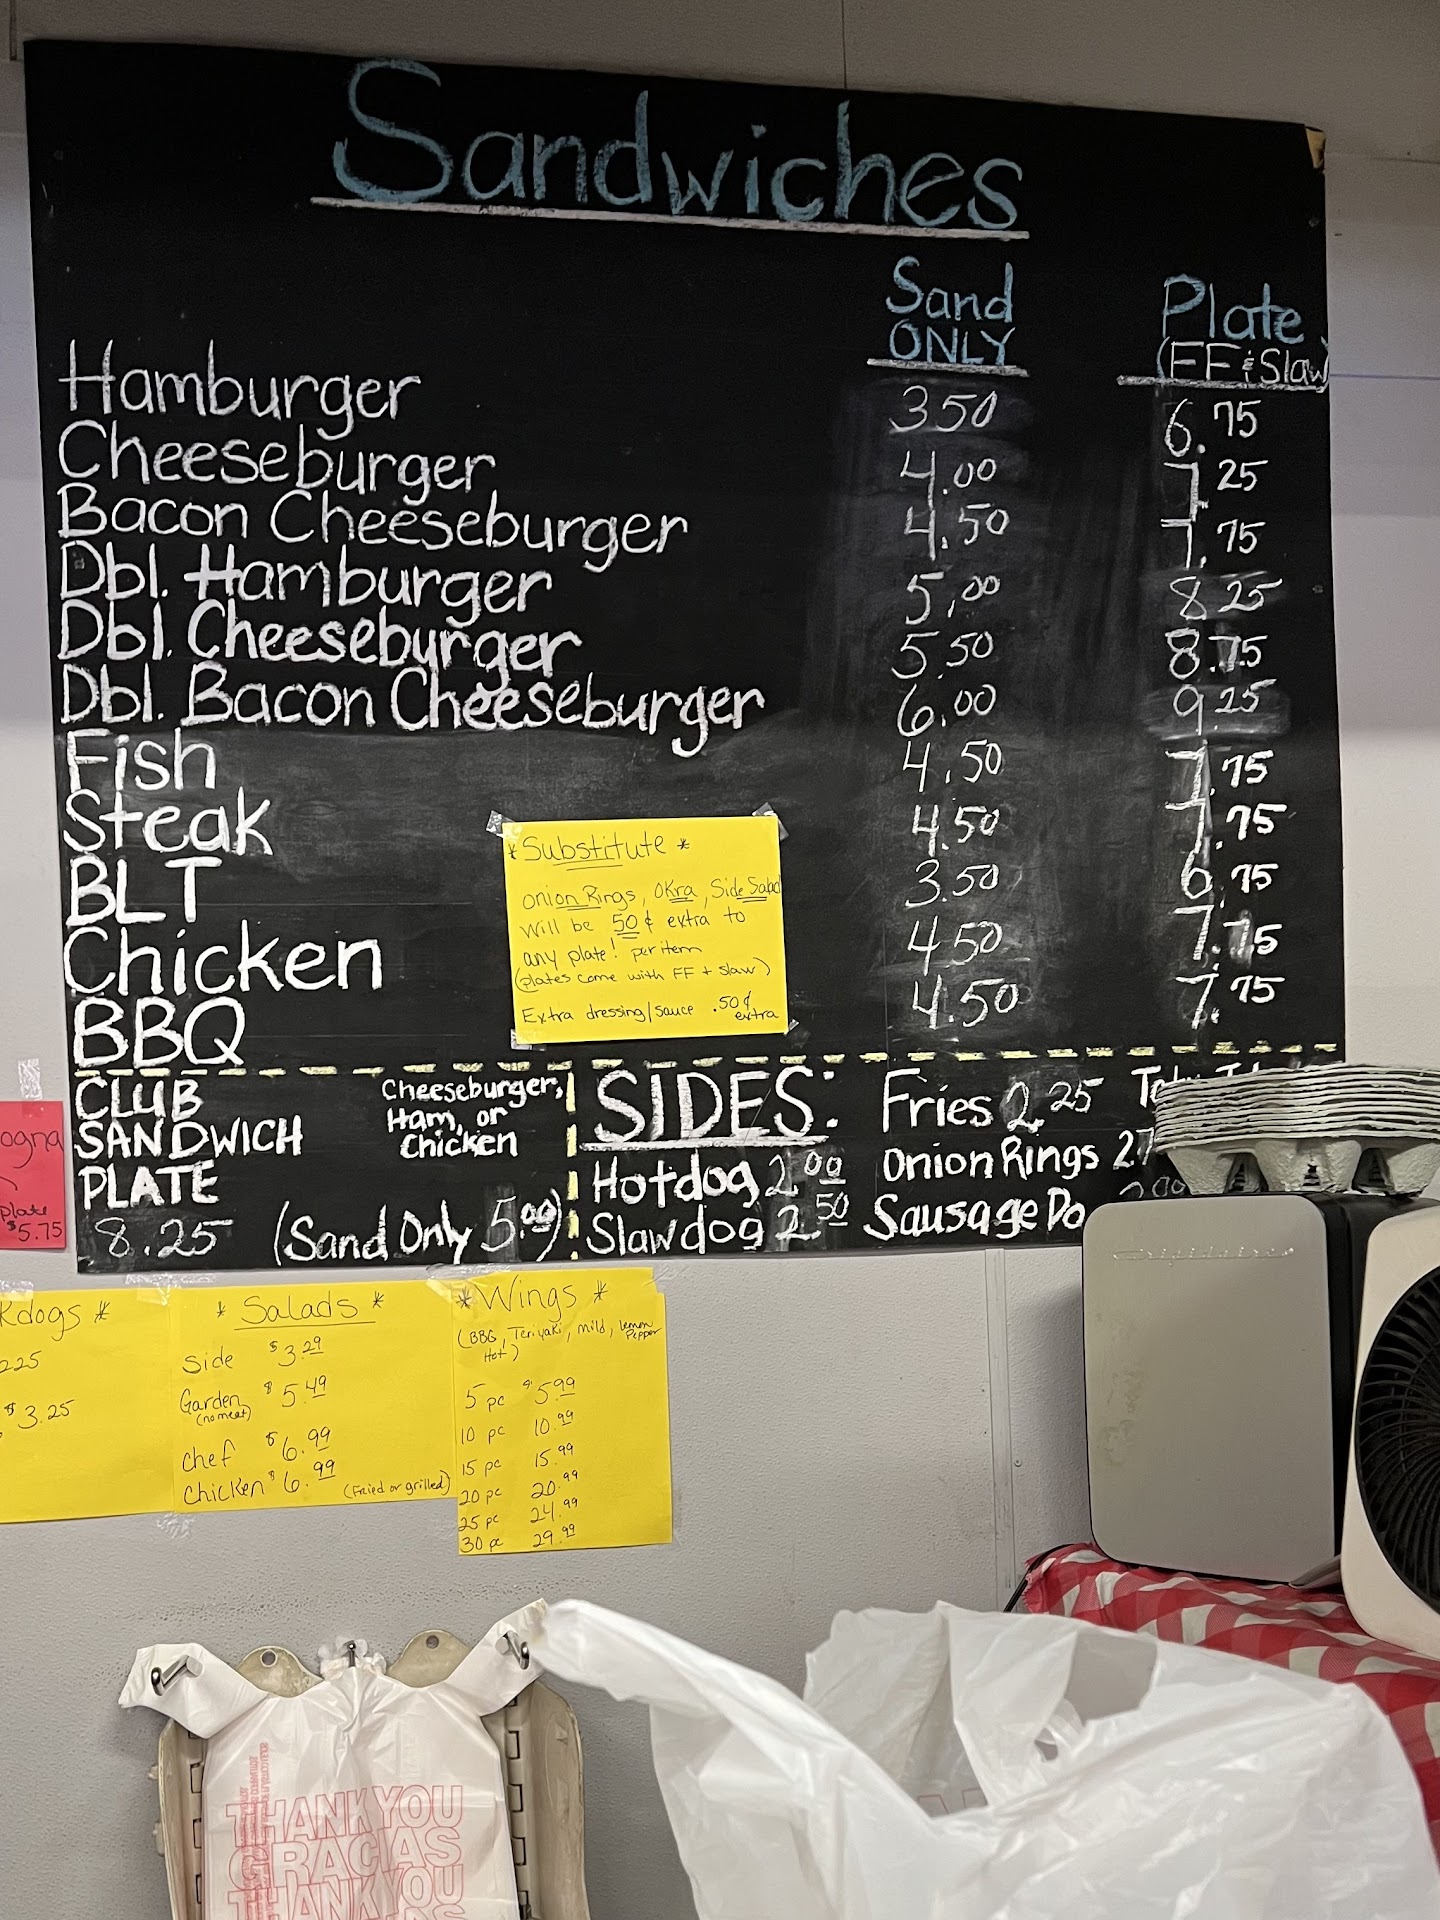 Sandwiches
Sand ONLY
Plate
(FF & Slaw)
Hamburger 3.50 6.75
Cheeseburger 4.00 7.25
Bacon Cheeseburger 4.50 7.75
Dbl. Hamburger 5.00 8.25
Dbl. Cheeseburger 5.50 8.75
Dbl. Bacon Cheeseburger 6.00 9.25
Fish 4.50 7.75
Steak 4.50 7.75
BLT 3.50 6.75
Chicken 4.50 7.75
BBQ 4.50 7.75
* Substitute *
Onion Rings, Okra, Side Salad
will be 50¢ extra to
any plate! per item
(plates come with FF + slaw)
Extra dressing/sauce .50¢ extra
CLUB
SANDWICH
PLATE
8.25
Cheeseburger,
Ham, or
Chicken
(Sand Only 5.00)
SIDES:
Hotdog 2.00
Slawdog 2.50
Fries 2.25
Onion Rings 27
Sausage Do
ogna
plate
$5.75
kdogs *
225
$3.25
* Salads *
Side $3.29
Garden $5.49
(no meat)
Chef $6.99
Chicken $6.99 (Fried or grilled)
* Wings *
(BBQ, Teriyaki, Mild, Lemon Pepper
Hot)
5 pc $5.99
10 pc 10.99
15 pc 15.99
20 pc 20.99
25 pc 24.99
30 pc 29.99
Frigidaire
THANK YOU
GRACIAS
THANK YOU